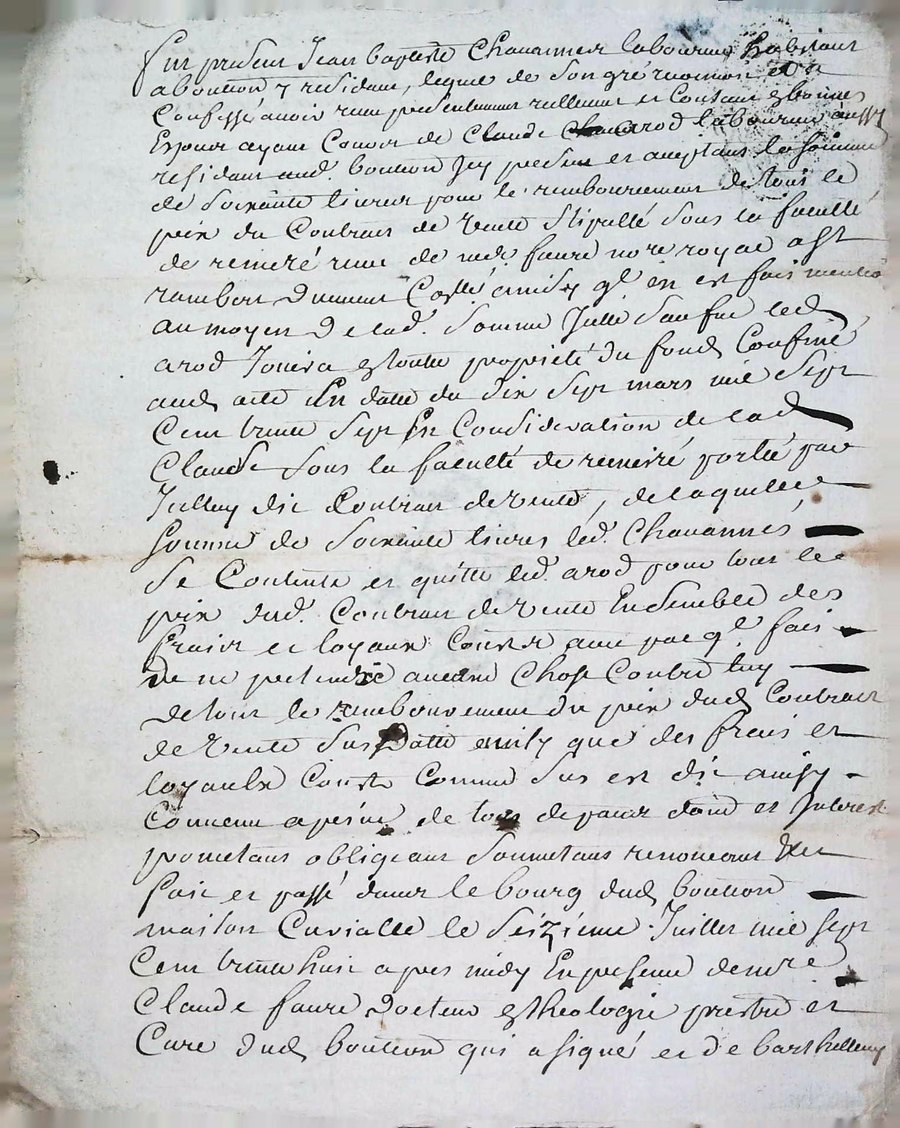 Fut present Jean baptiste Chauannes laboureur habitant
a bouteon y residant, lequel de son gré reconnoit et a
Confessé auoir reçu presentement reellement et Contant en bonnes
Especes ayant Cours de Claude arod laboureur aussy
residant aud. bouteon Icy present et aceptant la somme
de soixante liures pour le remboursement de tous le
prix du Contrat de vente stipullé sous la faculté
de remeré reçue de me faure no.re royal a St
rambert duement Collé ainsy q.l en est fait mention
au moyen de lad. somme Julle sauf led
arod Jouira en toutte proprieté du fond Confiné
aud. acte En datte du dix sept mars mil sept
Cent trente sept En Consideration de lad
Claude sous la faculté de remeré portée par
Jcelluy dit Contrat de vente, de laquelle
somme de soixante liures led. Chauannes
se Contente et quitte led. arod pour tous le
prix dud. Contrat de vente Ensemble des
fraix et loyaux Couster auec pac q.l fait
de ne pretendre aucune Chose Contre luy
de tout le remboursement du prix dud. Contrat
de vente sus datté ainsy que des frais et
loyaulx Couste Comme sus est dit ainsy
Conuenu a peine de tous depance dom et Interest
prometant obligeant soumetant renonceant &er
fait et passé dans le bourg dud. bouteon
maison Curialle le seizieme Juillet mil sept
Cent trente huit apres midy En presence de m.re
Claude faure docteur en theologie prestre et
Curé dud. bouteon qui a signé et de barthellemy